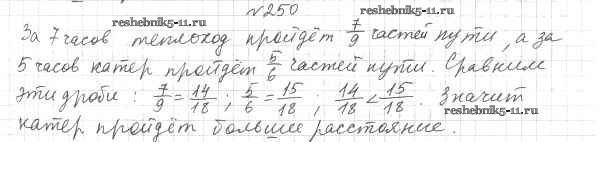 №250
reshebnik5-11.ru
reshebnik5-11.ru
За 7 часов теплоход пройдёт 7/9 частей пути, а за
5 часов катер пройдёт 5/6 частей пути. Сравним
эти дроби: 7/9 = 14/18; 5/6 = 15/18; 14/18 < 15/18. Значит
катер пройдёт большее расстояние.
reshebnik5-11.ru